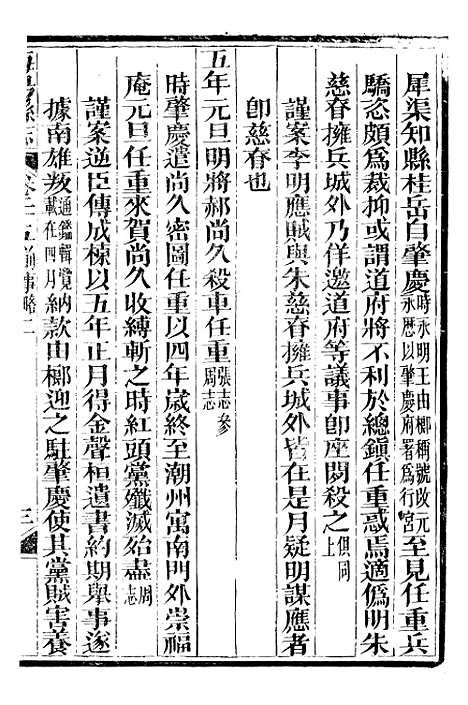 犀渠知縣桂岳自肇慶時永明王由榔稱號改元永厯以肇慶府署爲行宮至見任重兵
驕恣頗爲裁抑或謂道府將不利於總鎭任重惑焉適僞明朱
慈眷擁兵城外乃佯邀道府等議事卽座閧殺之俱同上
謹案李明應賊與朱慈眷擁兵城外皆在是月疑明謀應者
卽慈眷也
五年元旦明將郝尚久殺車任重張志參周志
時肇慶遣尚久密圖任重以四年歲終至潮州寓南門外崇福
庵元旦任重來賀尚久收縛斬之時紅頭黨殲滅始盡周志
謹案逆臣傳成棟以五年正月得金聲桓遺書約期舉事遂
據南雄叛通鑑輯覽載在四月納款由榔迎之駐肇慶使其黨賊害養
縣志 卷二十五 前事略二 三